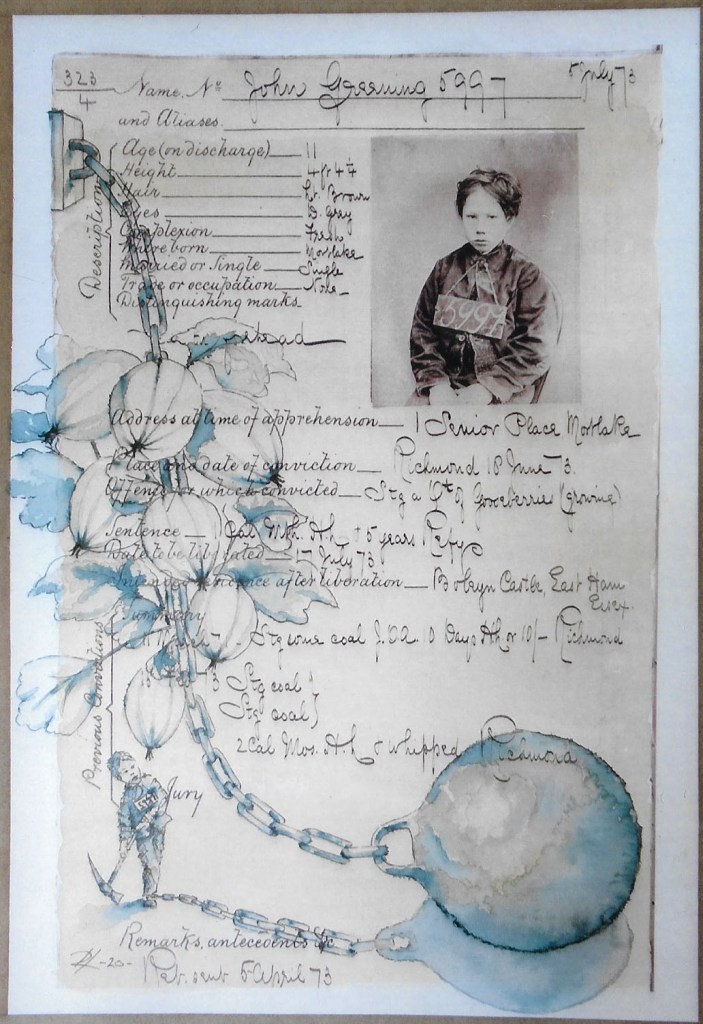 323
4
Name, No John Greening 5997 5 July 73
and Aliases.
Description
Age (on discharge) 11
Height 4 ft 4 1/4
Hair Lt. Brown
Eyes D. Grey
Complexion Fresh
Where born Mortlake
Married or Single Single
Trade or occupation None
Distinguishing marks
forehead
5997
Address at time of apprehension 1 Senior Place Mortlake
Place and date of conviction Richmond 18 June 73.
Offence for which convicted Stg a Qt of Gooseberries (growing)
Sentence 1 Cal Mth. Hh + 5 years Refy
Date to be liberated 17 July 73
Intended residence after liberation Boleyn Castle, East Ham
Essex.
Previous Convictions
Summary
Stg some coal 10 Days Hh or 10/- Richmond
Stg coal }
Stg coal }
2 Cal Mos. Hh & whipped Richmond
Jury
Remarks, antecedents &c
-20-
sent 5 April 73